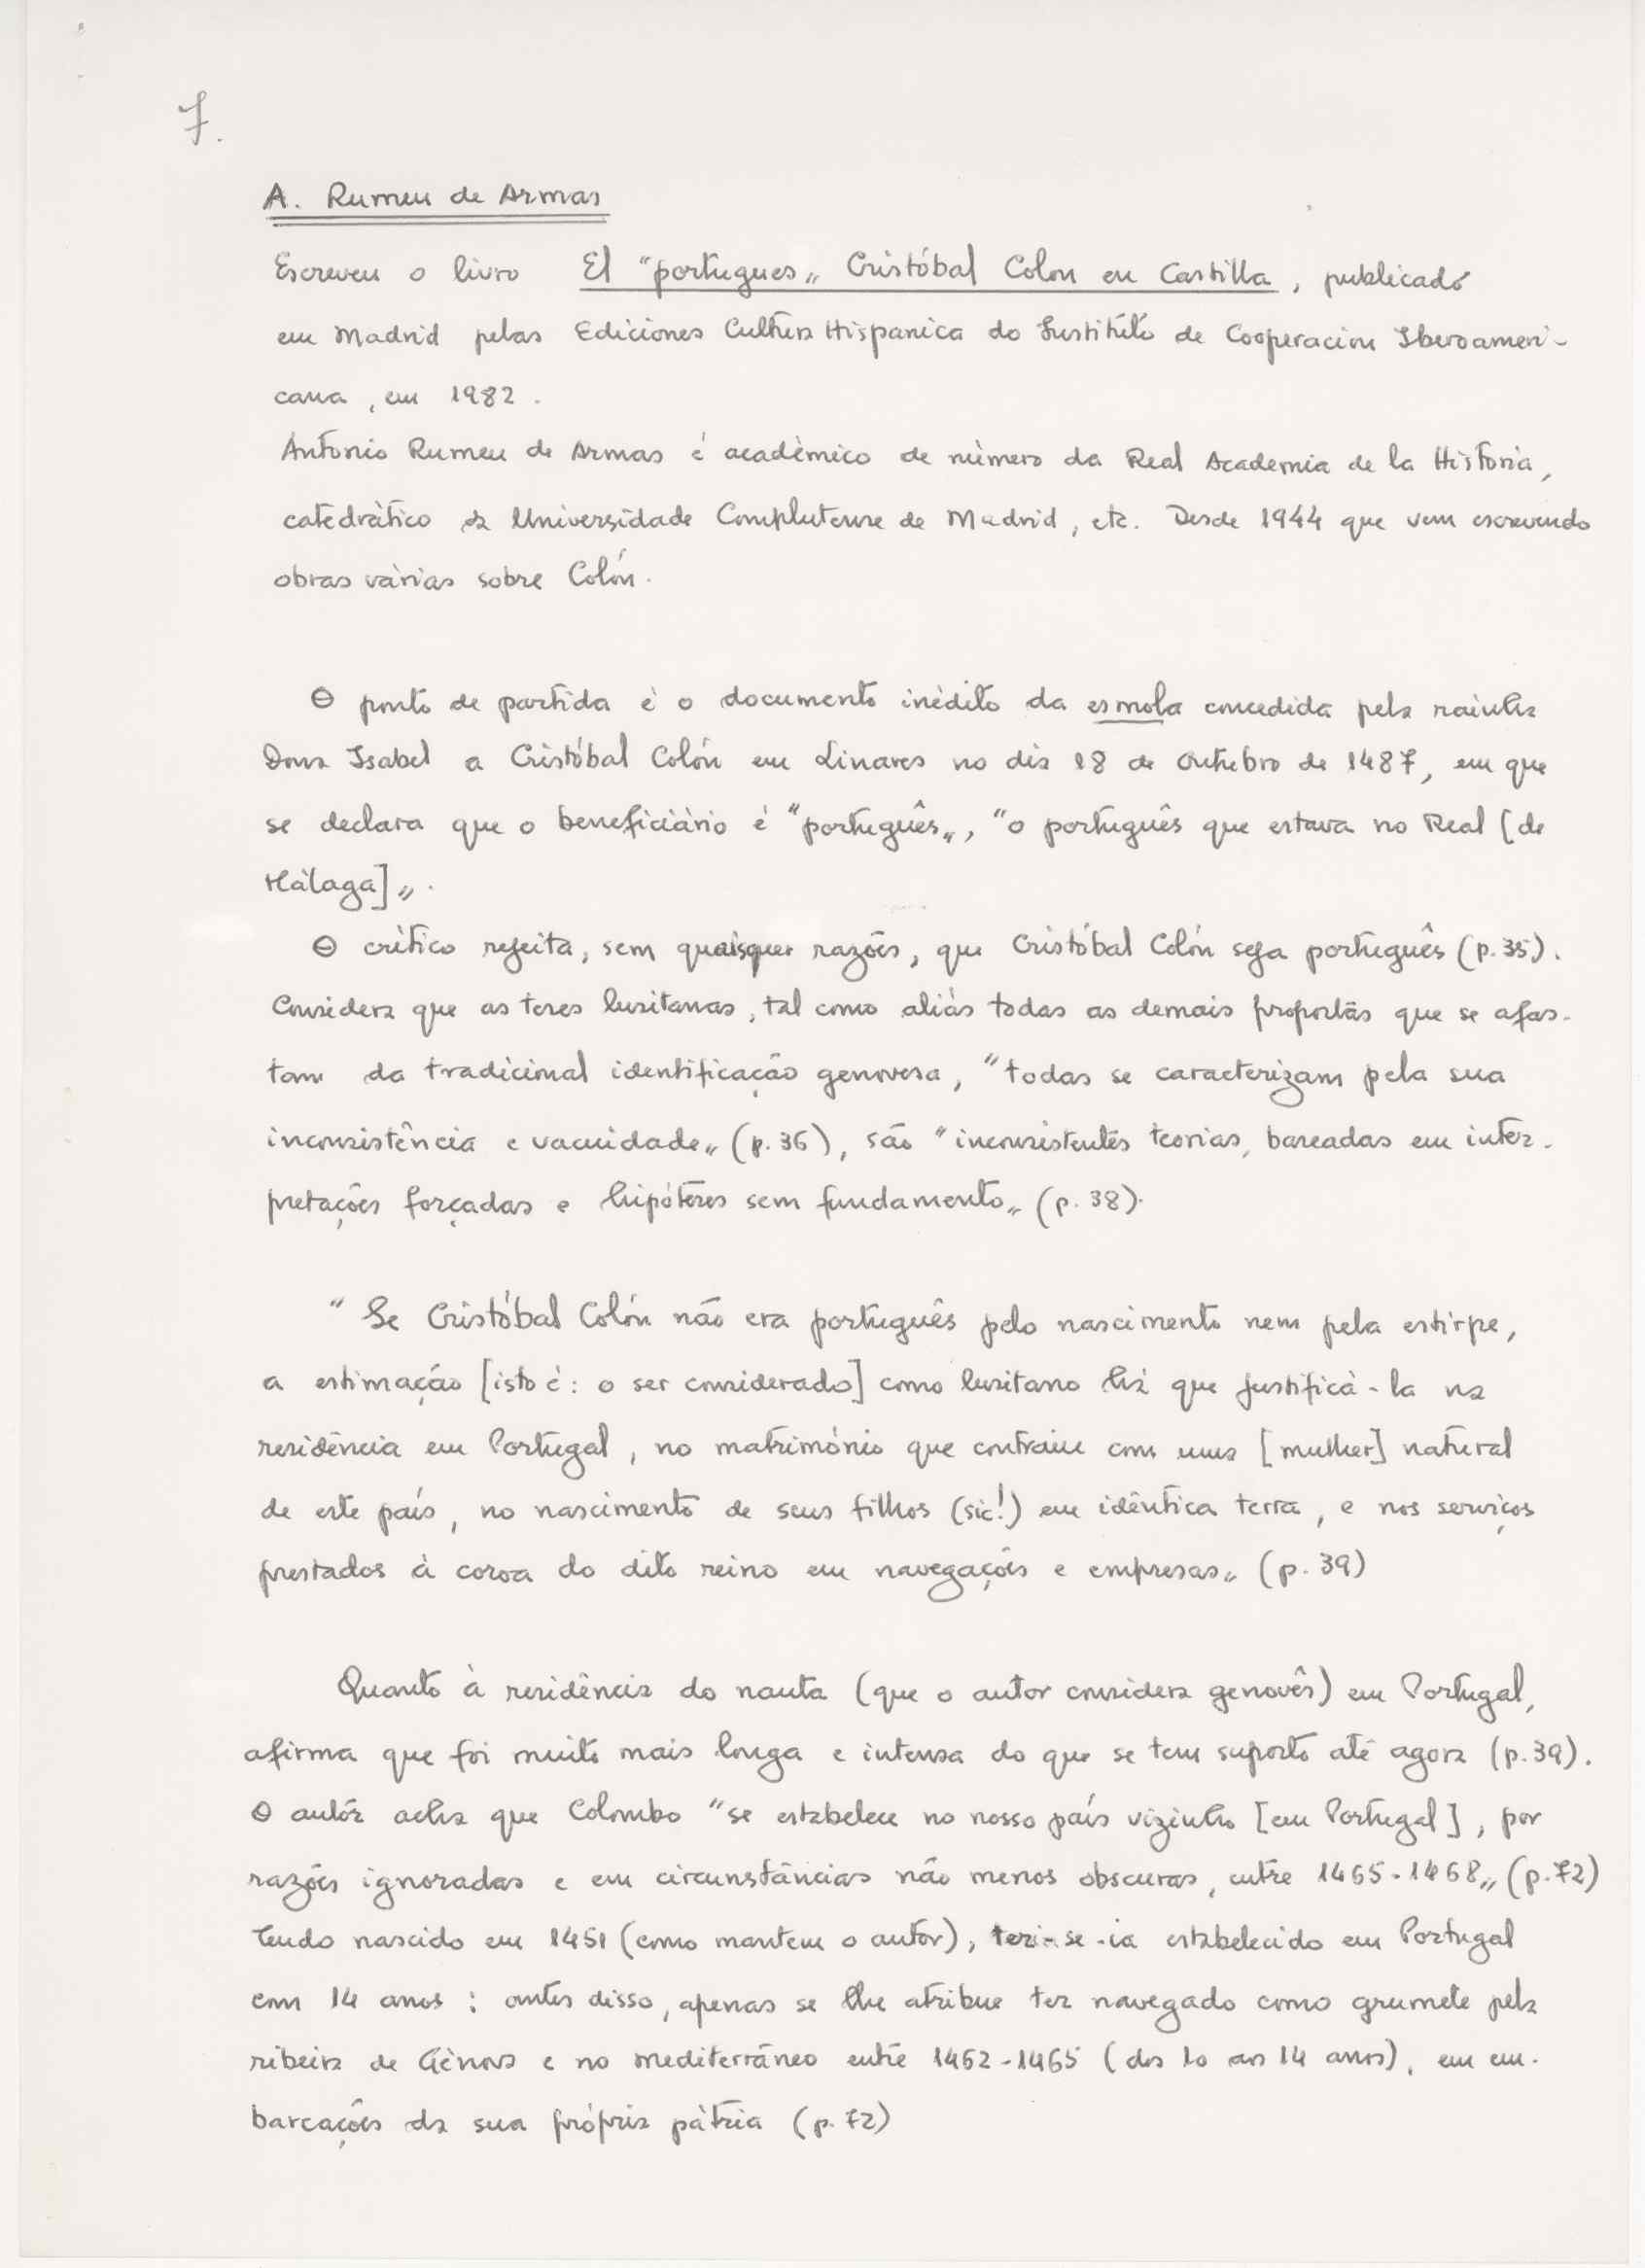 7.
A. Rumeu de Armas
Escreveu o livro El "portugues" Cristóbal Colon en Castilla, publicado
em Madrid pelas Ediciones Cultura Hispanica do Instituto de Cooperacion Iberoameri-
cana, em 1982.
Antonio Rumeu de Armas é acadèmico de nùmero da Real Academia de la Historia,
catedràtico da Universidade Complutense de Madrid, etc. Desde 1944 que vem escrevendo
obras vàrias sobre Colón.
O ponto de partida è o documento inèdito da esmola concedida pela rainha
Dona Isabel a Cristóbal Colón em Linares no dia 18 de Outubro de 1487, em que
se declara que o beneficiàrio é "português", "o português que estava no Real [de
Màlaga]".
O crìtico rejeita, sem quaisquer razões, que Cristóbal Colón seja português (p. 35).
Considera que as teses lusitanas, tal como aliàs todas as demais propostas que se afas-
tam da tradicional identificação genovesa, "todas se caracterizam pela sua
inconsistência e vacuidade" (p. 36), são "inconsistentes teorias, baseadas em inter-
pretações forçadas e hipóteses sem fundamento" (p. 38).
"Se Cristóbal Colón não era português pelo nascimento nem pela estirpe,
a estimação [isto è: o ser considerado] como lusitano há que justificà-la na
residência em Portugal, no matrimónio que contraiu com uma [mulher] natural
de este país, no nascimento de seus filhos (sic!) em idêntica terra, e nos serviços
prestados à coroa do dito reino em navegações e empresas" (p. 39)
Quanto à residência do nauta (que o autor considera genovês) em Portugal,
afirma que foi muito mais longa e intensa do que se tem suposto até agora (p. 39).
O autor acha que Colombo "se estabelece no nosso país vizinho [em Portugal], por
razões ignoradas e em circunstâncias não menos obscuras, entre 1465-1468" (p. 72)
Tendo nascido em 1451 (como mantem o autor), ter-se-ia estabelecido em Portugal
com 14 anos: antes disso, apenas se lhe atribue ter navegado como grumete pela
ribeira de Gènova e no mediterrâneo entre 1462-1465 (dos 10 aos 14 anos), em em-
barcações da sua própria pàtria (p. 72)